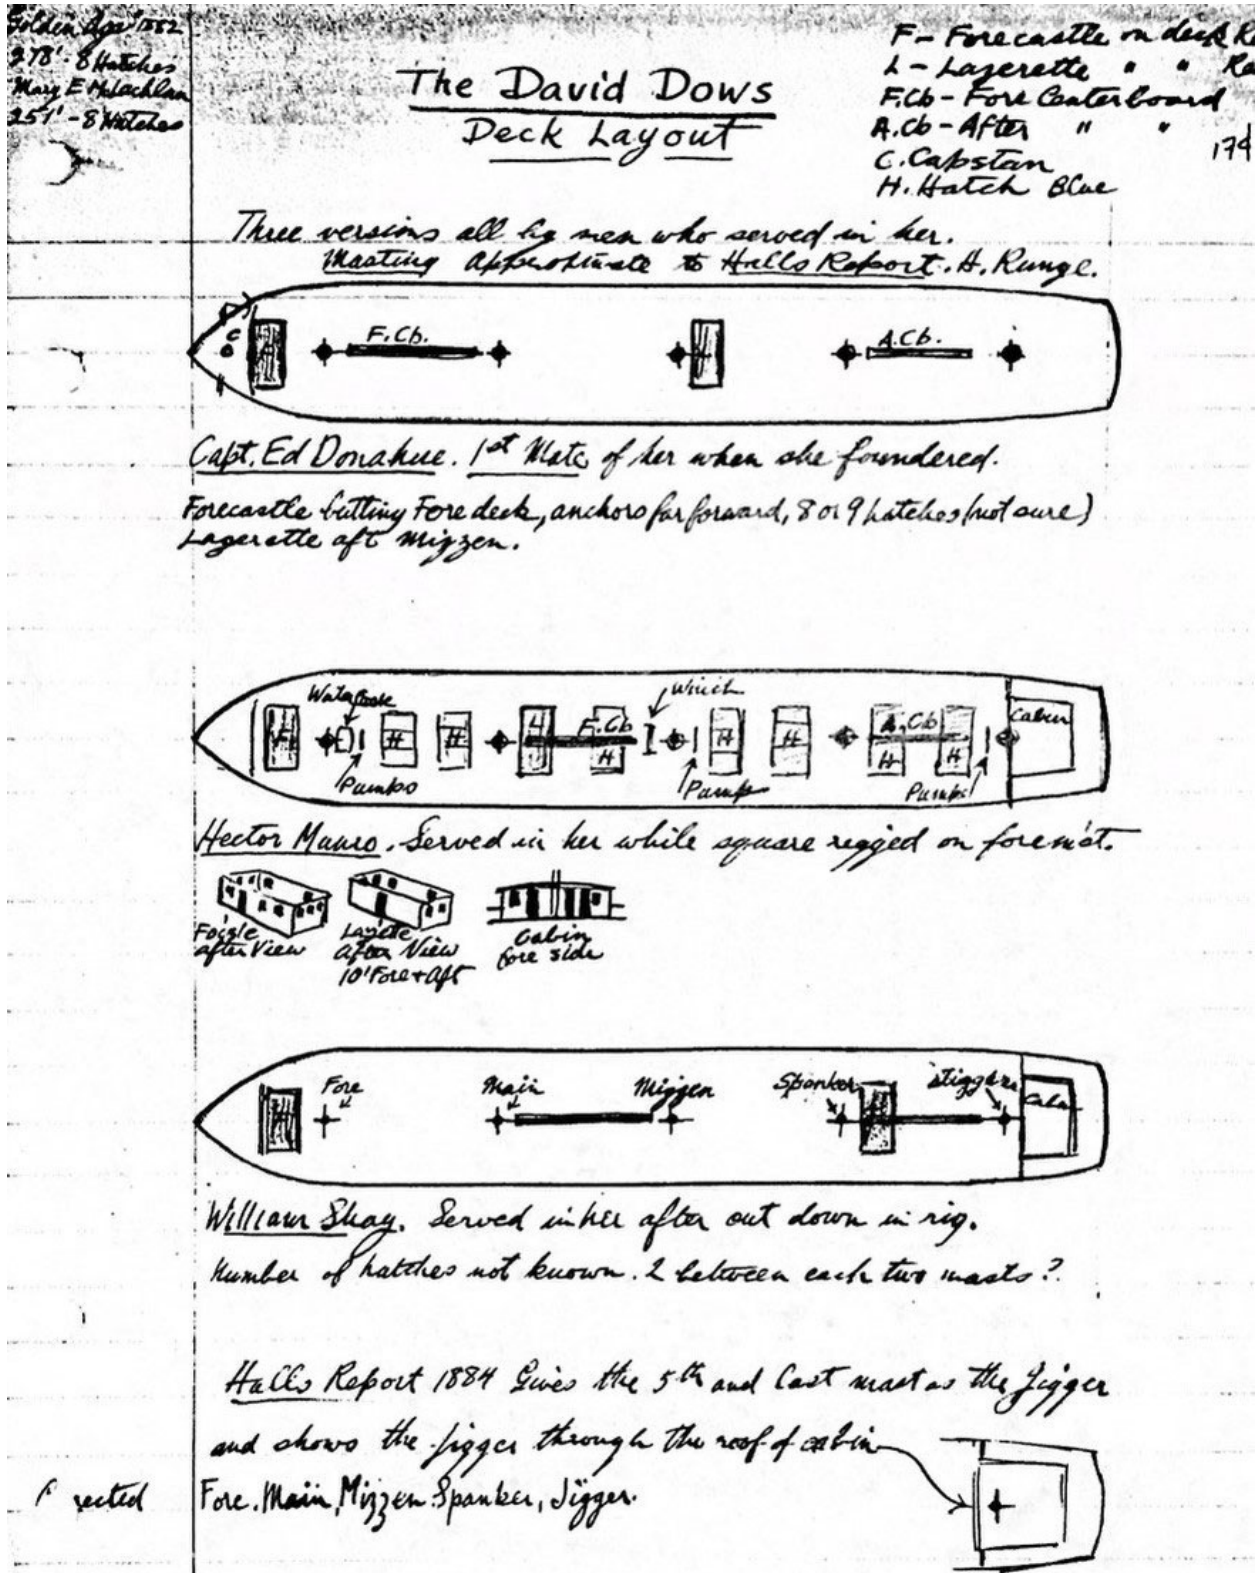 Golden Age 1882
278' - 8 Hatches
Mary E McLachlan
251' - 8 Hatches
The David Dows
Deck Layout
F - Forecastle on deck
L - Lazerette " "
F.Cb - Fore Centerboard
A.Cb - After " "
C. Capstan
H. Hatch Blue
174
Three versions all by men who served in her.
Masting approximate to Halls Report. H. Runge.
C
F.Cb.
A.Cb.
Capt. Ed Donahue. 1st Mate of her when she foundered.
Forecastle butting Fore deck, anchors far forward, 8 or 9 hatches (not sure)
Lazerette aft Mizzen.
Water
Winch
F
H
H
L
F.Cb
H
H
H
A.Cb
H
H
Cabin
Pumps
Pump
Pumps
Hector Munro. Served in her while square rigged on foremst.
Fo'gle
after View
Laz'te
after View
10' Fore + Aft
Cabin
fore side
Fore
Main
Mizzen
Spanker
Cabin
William Shay. Served in her after cut down in rig.
Number of hatches not known. 2 between each two masts?
Halls Report 1884 Gives the 5th and last mast as the Jigger
and shows the jigger through the roof of cabin
Fore. Main, Mizzen. Spanker, Jigger.